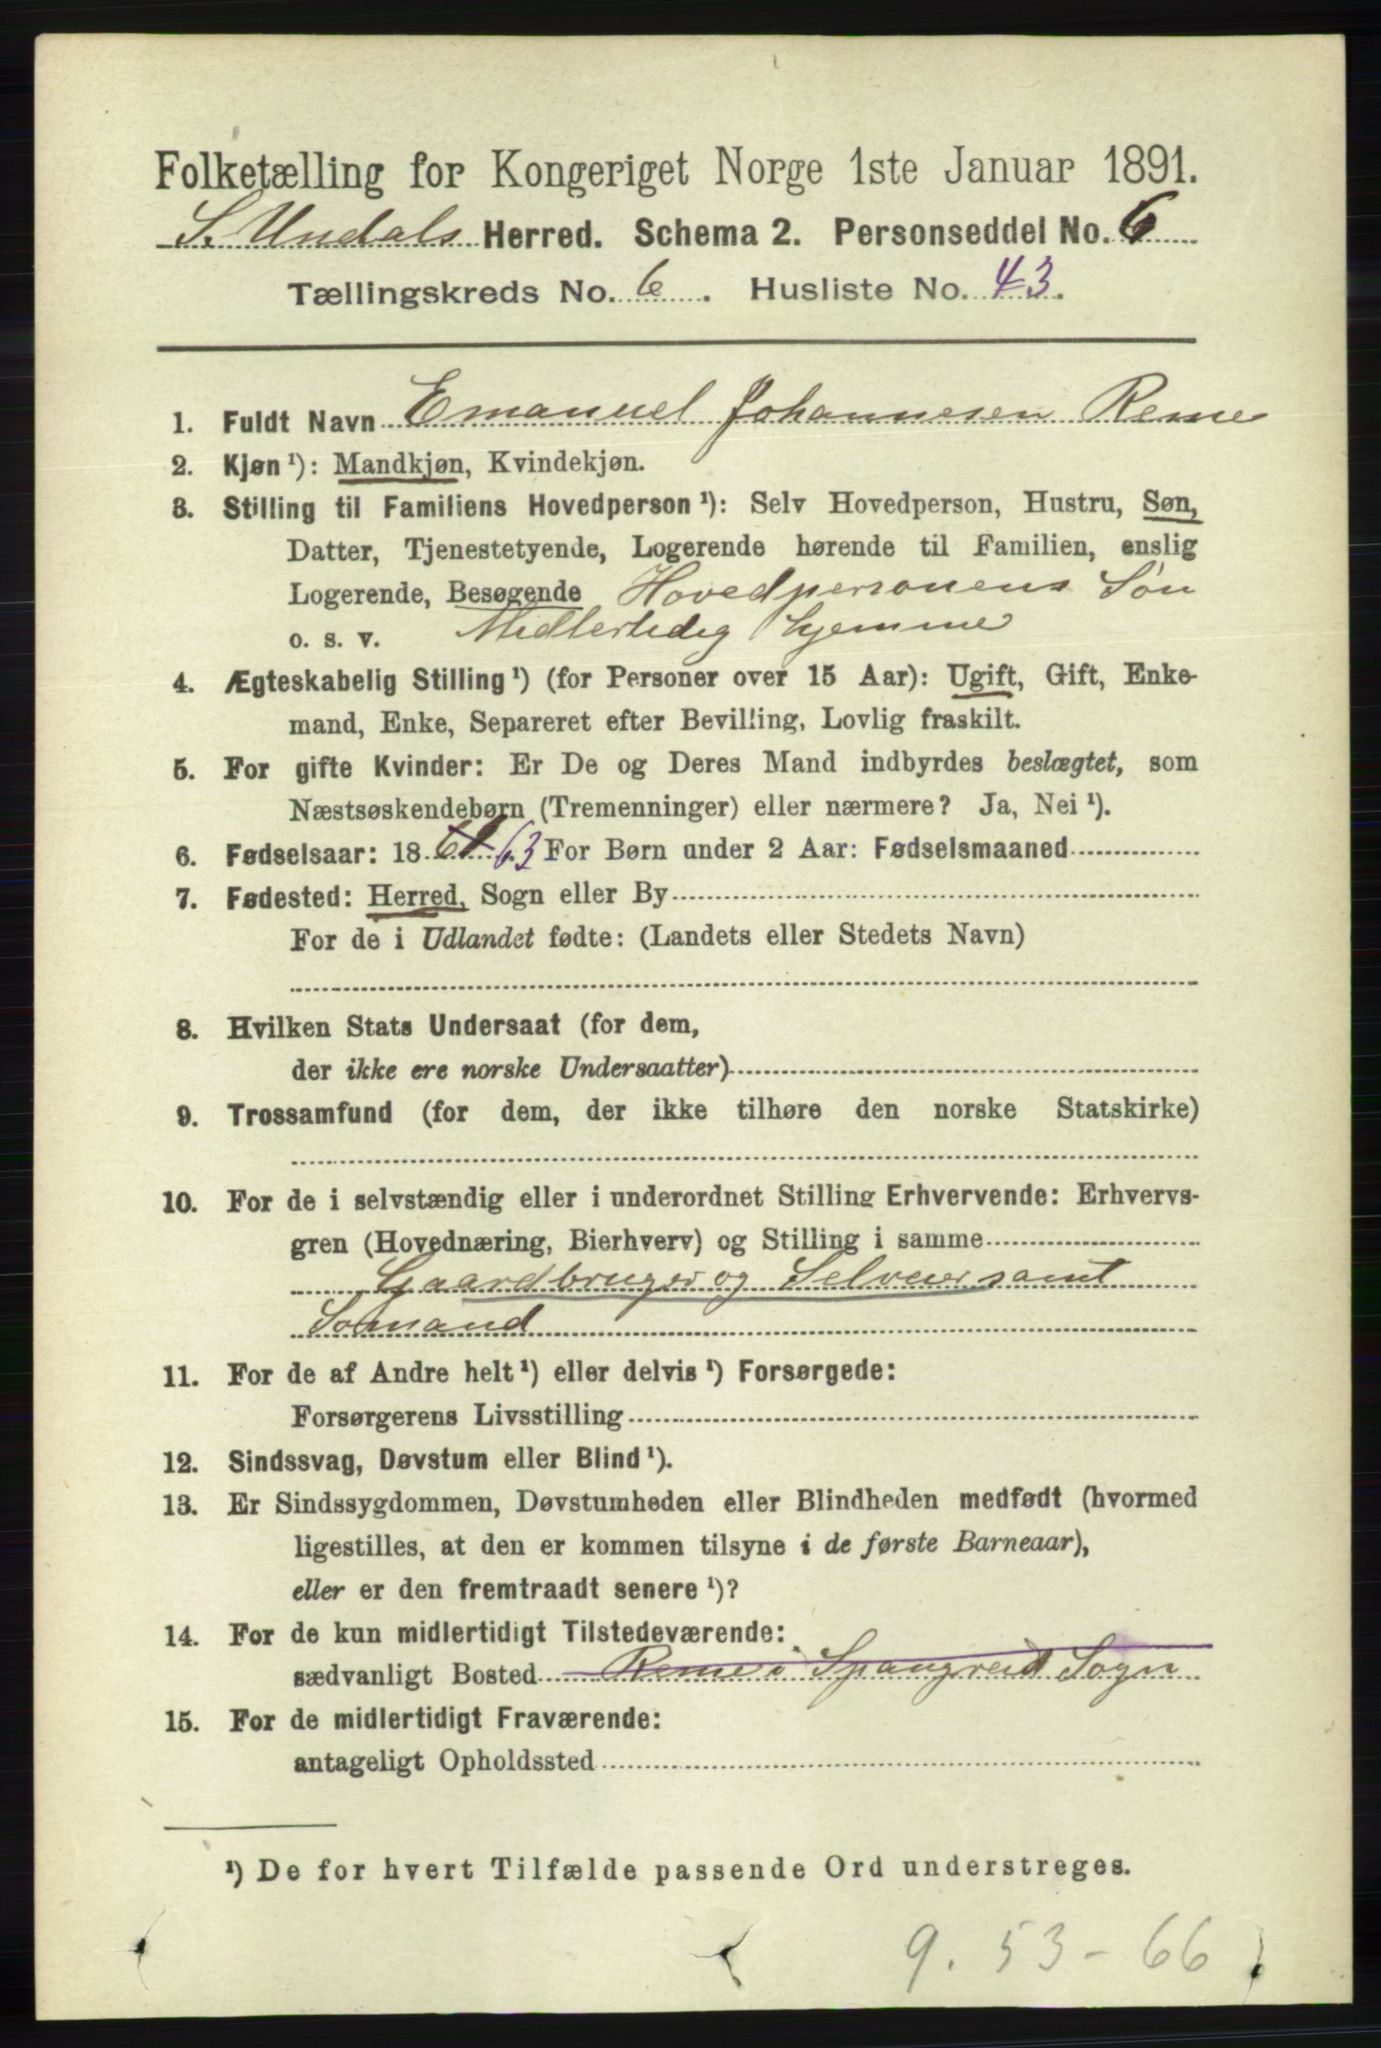 Folketælling for Kongeriget Norge 1ste Januar 1891.
S. Undals Herred. Schema 2. Personseddel No. 6
Tællingskreds No. 6. Husliste No. 43.
1. Fuldt Navn Emanuel Johannesen Reme
2. Kjøn ¹): Mandkjøn, Kvindekjøn.
3. Stilling til Familiens Hovedperson ¹): Selv Hovedperson, Hustru, Søn,
Datter, Tjenestetyende, Logerende hørende til Familien, enslig
Logerende, Besøgende Hovedpersonens Søn
o. s. v. Midlertidig hjemme
4. Ægteskabelig Stilling ¹) (for Personer over 15 Aar): Ugift, Gift, Enke-
mand, Enke, Separeret efter Bevilling, Lovlig fraskilt.
5. For gifte Kvinder: Er De og Deres Mand indbyrdes beslægtet, som
Næstsøskendebørn (Tremenninger) eller nærmere? Ja, Nei ¹).
6. Fødselsaar: 18 61 63 For Børn under 2 Aar: Fødselsmaaned
7. Fødested: Herred, Sogn eller By
For de i Udlandet fødte: (Landets eller Stedets Navn)
8. Hvilken Stats Undersaat (for dem,
der ikke ere norske Undersaatter)
9. Trossamfund (for dem, der ikke tilhøre den norske Statskirke)
10. For de i selvstændig eller i underordnet Stilling Erhvervende: Erhvervs-
gren (Hovednæring, Bierhverv) og Stilling i samme
Gaardbruger og Selveier samt
Sømand
11. For de af Andre helt ¹) eller delvis ¹) Forsørgede:
Forsørgerens Livsstilling
12. Sindssvag, Døvstum eller Blind ¹).
13. Er Sindssygdommen, Døvstumheden eller Blindheden medfødt (hvormed
ligestilles, at den er kommen tilsyne i de første Barneaar),
eller er den fremtraadt senere ¹)?
14. For de kun midlertidigt Tilstedeværende:
sædvanligt Bosted Reme i Spangreid Sogn
15. For de midlertidigt Fraværende:
antageligt Opholdssted
¹) De for hvert Tilfælde passende Ord understreges.
9. 53 - 66